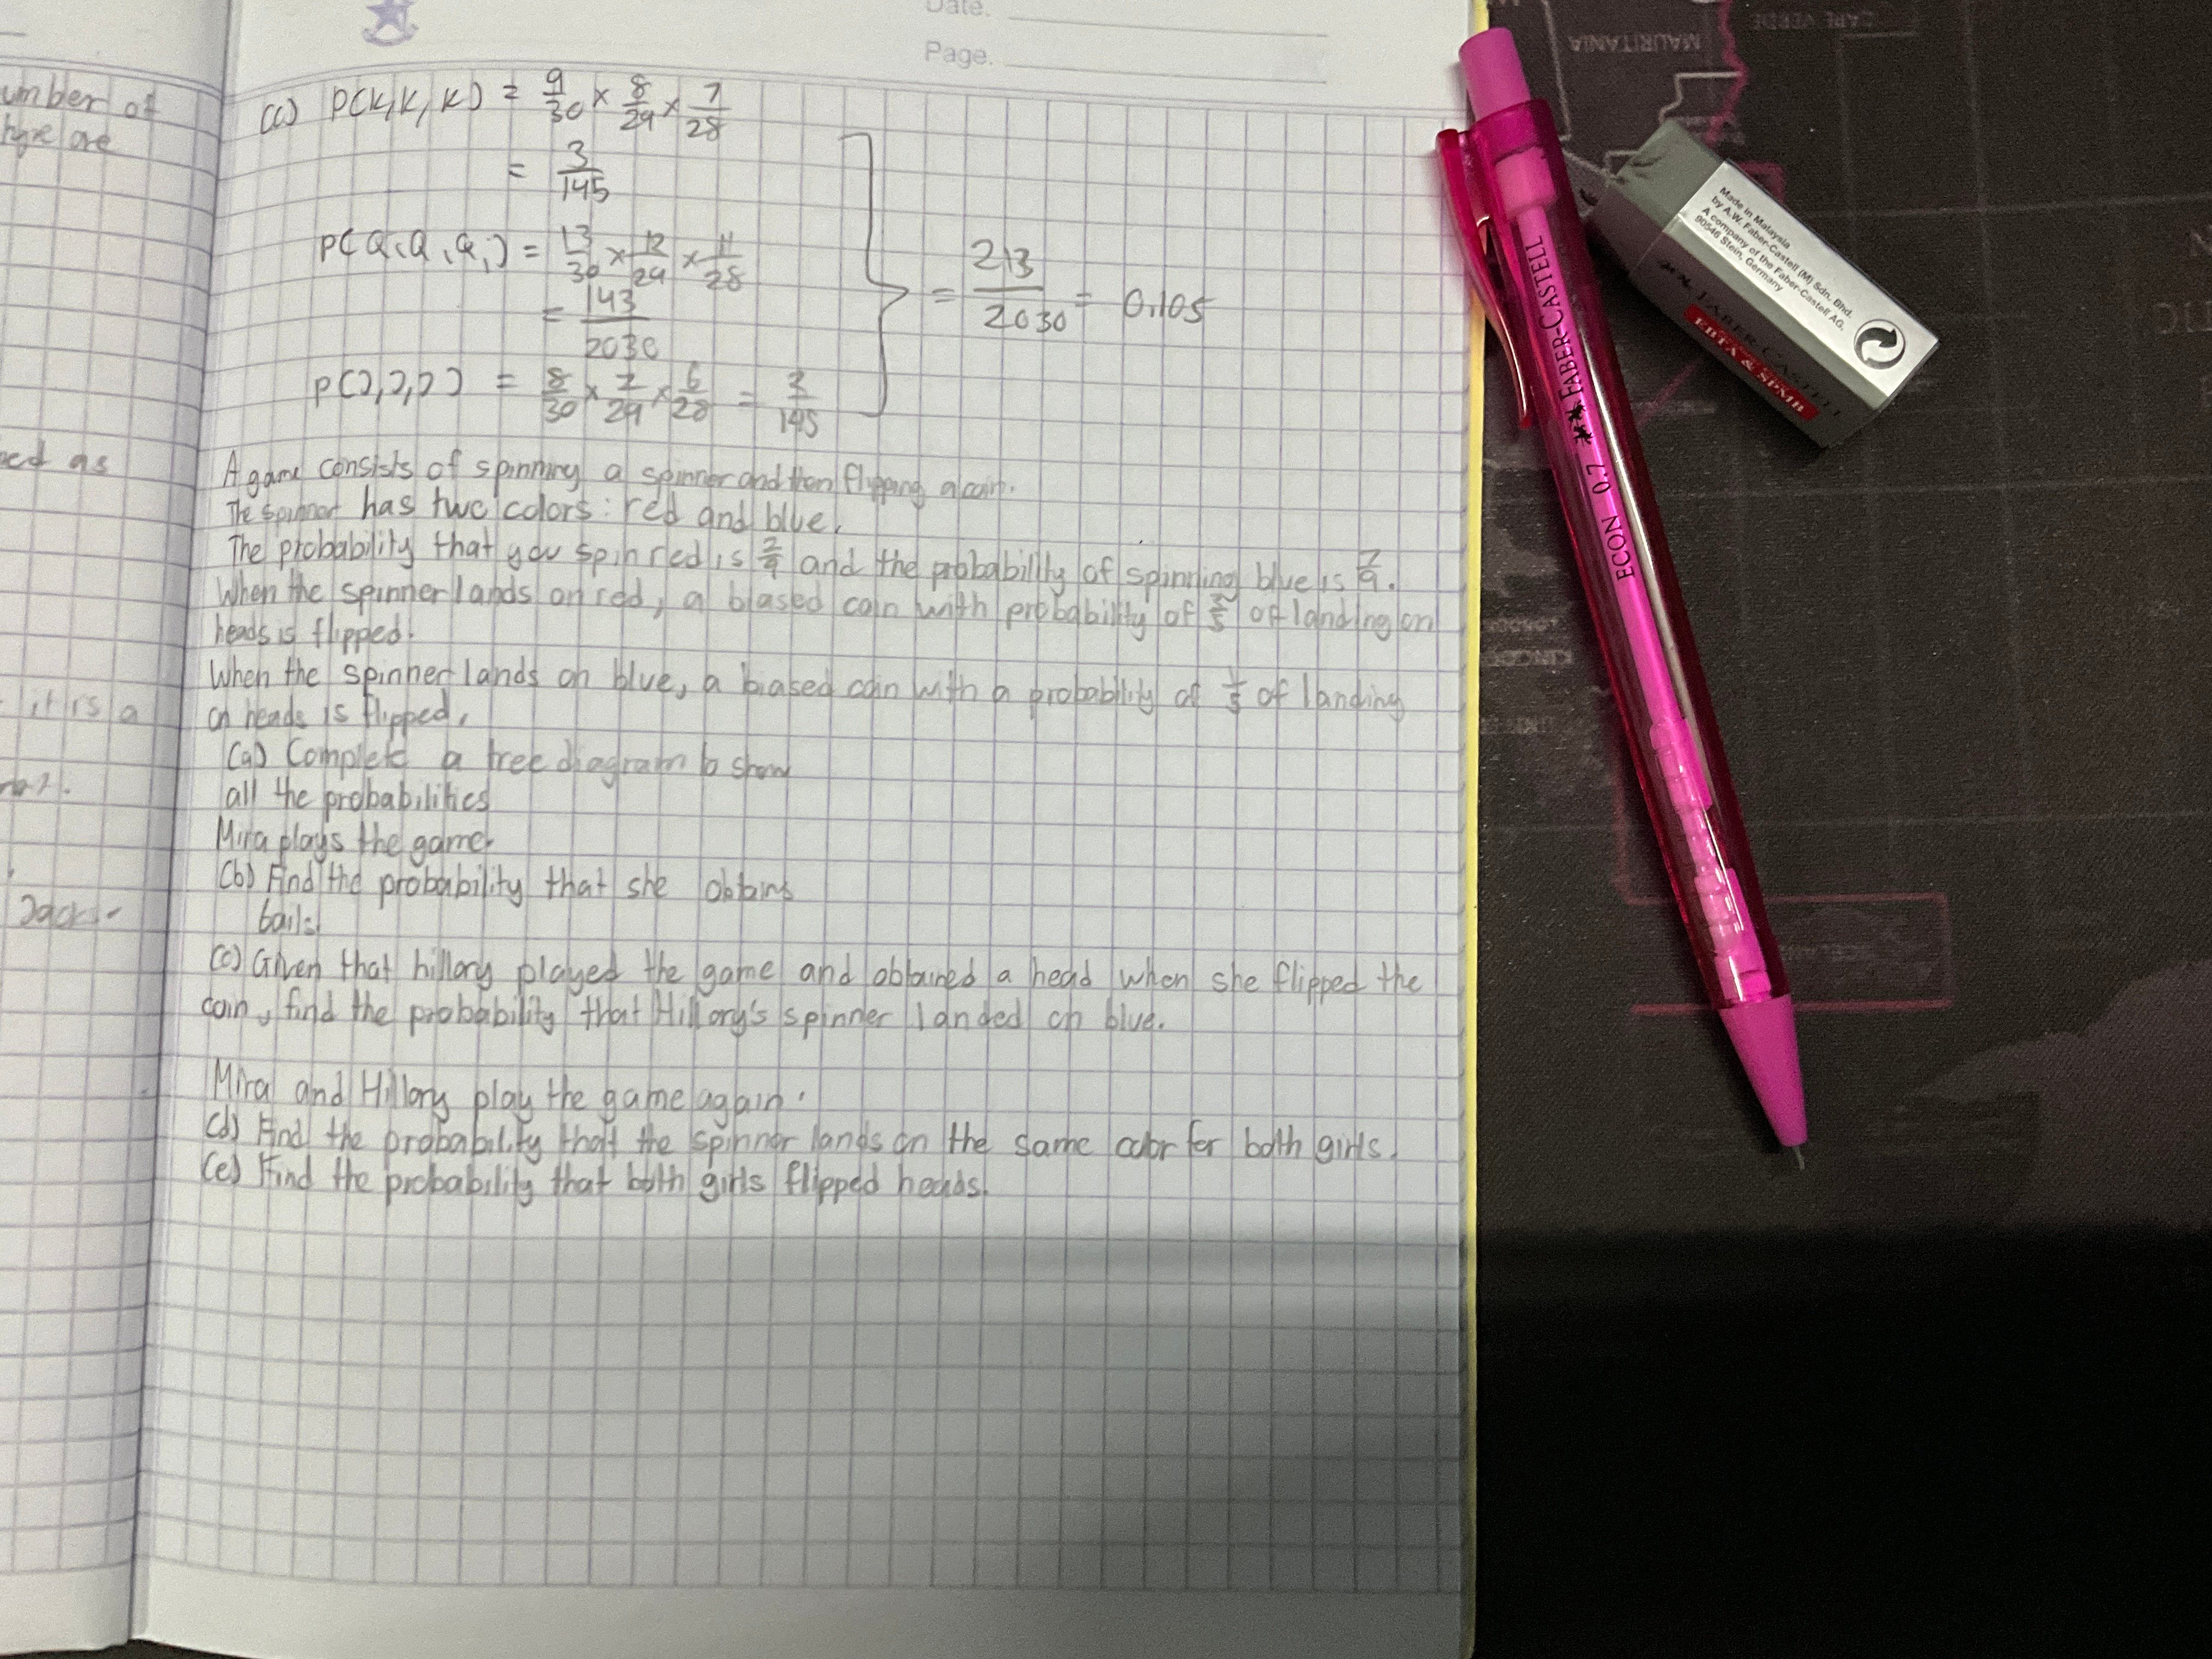 Date.
Page.
umber of
(c) P(K, K, K) = 9/30 × 8/29 × 7/28
are
= 3/145
P(Q, Q, Q,) = 13/30 × 12/29 × 11/28
= 143/2030
= 213/2030 = 0.105
P(J, J, J) = 8/30 × 7/29 × 6/28 =
as
A game consists of spinning a spinner and then flipping a coin.
The spinner has two colors: red and blue.
The probability that you spin red is 2/9 and the probability of spinning blue is 7/9.
When the spinner lands on red, a biased coin with probability of /5 of landing on
heads is flipped.
When the spinner lands on blue, a biased coin with a probability of of landing
it is a
on heads is flipped.
(a) Complete a tree diagram to show
all the probabilities
Mira plays the game.
(b) Find the probability that she obtains
Jacks.
tails
(c) Given that hillory played the game and obtained a head when she flipped the
coin, find the probability that Hillory's spinner landed on blue.
Mira and Hillory play the game again.
(d) Find the probability that the spinner lands on the same color for both girls.
(e) Find the probability that both girls flipped heads.
ECON 0.7 FABER-CASTELL
Made in Malaysia
by A.W. Faber-Castell (M) Sdn. Bhd.
A company of the Faber-Castell AG,
90546 Stein, Germany
FABER-CASTELL
EBTA & SPMB
MAURITANIA
CAPE VERDE